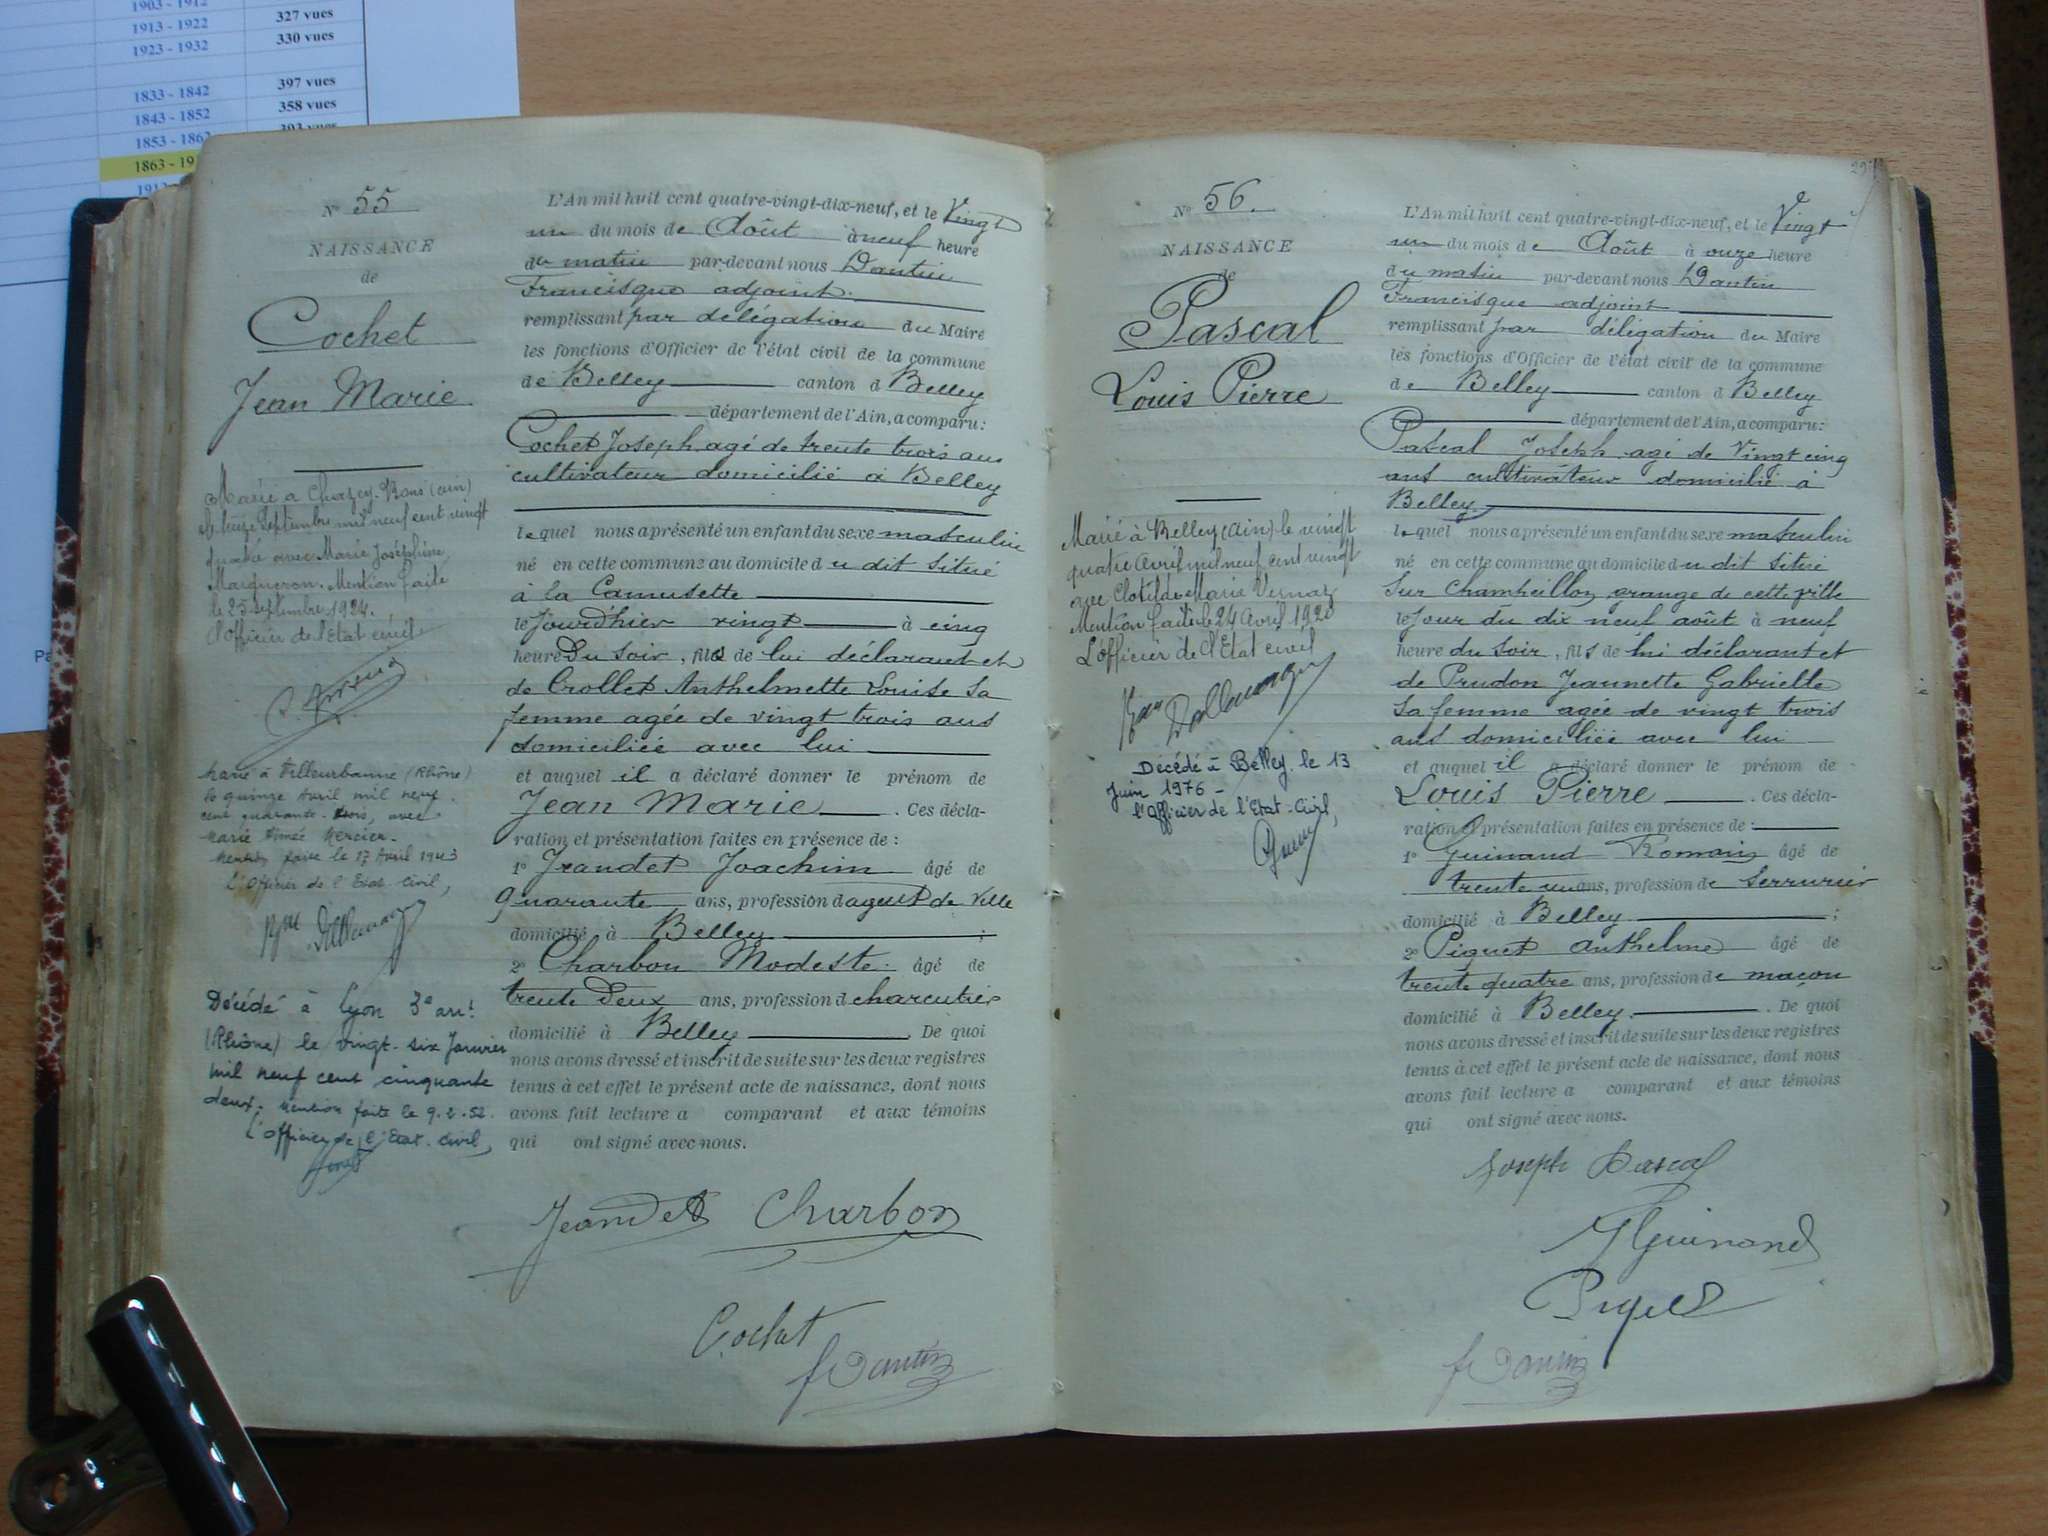 1903 - 1912
1913 - 1922 327 vues
1923 - 1932 330 vues
1833 - 1842 397 vues
1843 - 1852 358 vues
1853 - 1862 393 vues
1863 - 19
191
Pa
N° 55
NAISSANCE
de
Cochet
Jean Marie
Marié à Chazey-Bons (ain)
le Septembre mil neuf cent vingt
quatre avec Marie Joséphine
Mention faite
le 25 septembre 1924.
L'officier de l'Etat civil
Marié à Villeurbanne (Rhône)
le quinze Avril mil neuf
cent quarante-trois, avec
Marie Aimée Mercier-
Mention faite le 17 Avril 1943
L'Officier de l'Etat Civil,
Décédé à Lyon 3e arrt
(Rhône) le vingt-six Janvier
mil neuf cent cinquante
deux. Mention faite le 9.2.52.
L'officier de l'Etat-civil,
L'An mil huit cent quatre-vingt-dix-neuf, et le Vingt
un du mois de Août à neuf heure
du matin par-devant nous Dantin
Francisque adjoint
remplissant par délégation du Maire
les fonctions d'Officier de l'état civil de la commune
de Belley canton d Belley
département de l'Ain, a comparu:
Cochet Joseph agé de trente trois ans
cultivateur domicilié à Belley
lequel nous a présenté un enfant du sexe masculin
né en cette commune au domicile du dit situé
à la Camusette
le jourd'hier vingt à cinq
heure Du soir, fils de lui déclarant et
de Crollet Anthelmette Louise sa
femme agée de vingt trois ans
domiciliée avec lui
et auquel il a déclaré donner le prénom de
Jean Marie. Ces décla-
ration et présentation faites en présence de :
1° Jeandet Joachim âgé de
Quarante ans, profession d agent de Ville
domicilié à Belley ;
2° Charbon Modeste âgé de
trente Deux ans, profession d charcutier
domicilié à Belley. De quoi
nous avons dressé et inscrit de suite sur les deux registres
tenus à cet effet le présent acte de naissance, dont nous
avons fait lecture a comparant et aux témoins
qui ont signé avec nous.
Jeandet Charbon
Cochet
f Dantin
29
N° 56.
NAISSANCE
de
Pascal
Louis Pierre
Marié à Belley (Ain) le vingt
quatre Avril mil neuf cent vingt
avec Clotilde Marie
Mention faite le 24 Avril 1920
L'officier de l'Etat civil
Décédé à Belley. le 13
Juin 1976 -
l'Officier de l'Etat-Civil,
L'An mil huit cent quatre-vingt-dix-neuf, et le Vingt
un du mois de Août à onze heure
du matin par-devant nous Dantin
Francisque adjoint
remplissant par délégation du Maire
les fonctions d'Officier de l'état civil de la commune
de Belley canton d Belley
département de l'Ain, a comparu:
Pascal Joseph agé de Vingt cinq
ans cultivateur domicilié à
Belley
lequel nous a présenté un enfant du sexe masculin
né en cette commune au domicile du dit situé
Sur Champeillon grange de cette ville
le jour du dix neuf août à neuf
heure du soir, fils de lui déclarant et
de Prudon Jeannette Gabrielle
sa femme agée de vingt trois
ans domiciliée avec lui
et auquel il a déclaré donner le prénom de
Louis Pierre. Ces décla-
ration et présentation faites en présence de :
1° Guinand Romain âgé de
trente un ans, profession de serrurier
domicilié à Belley ;
2° Piquet Anthelme âgé de
trente quatre ans, profession de maçon
domicilié à Belley. De quoi
nous avons dressé et inscrit de suite sur les deux registres
tenus à cet effet le présent acte de naissance, dont nous
avons fait lecture a comparant et aux témoins
qui ont signé avec nous.
Joseph Pascal
Guinand
Piquet
f Dantin